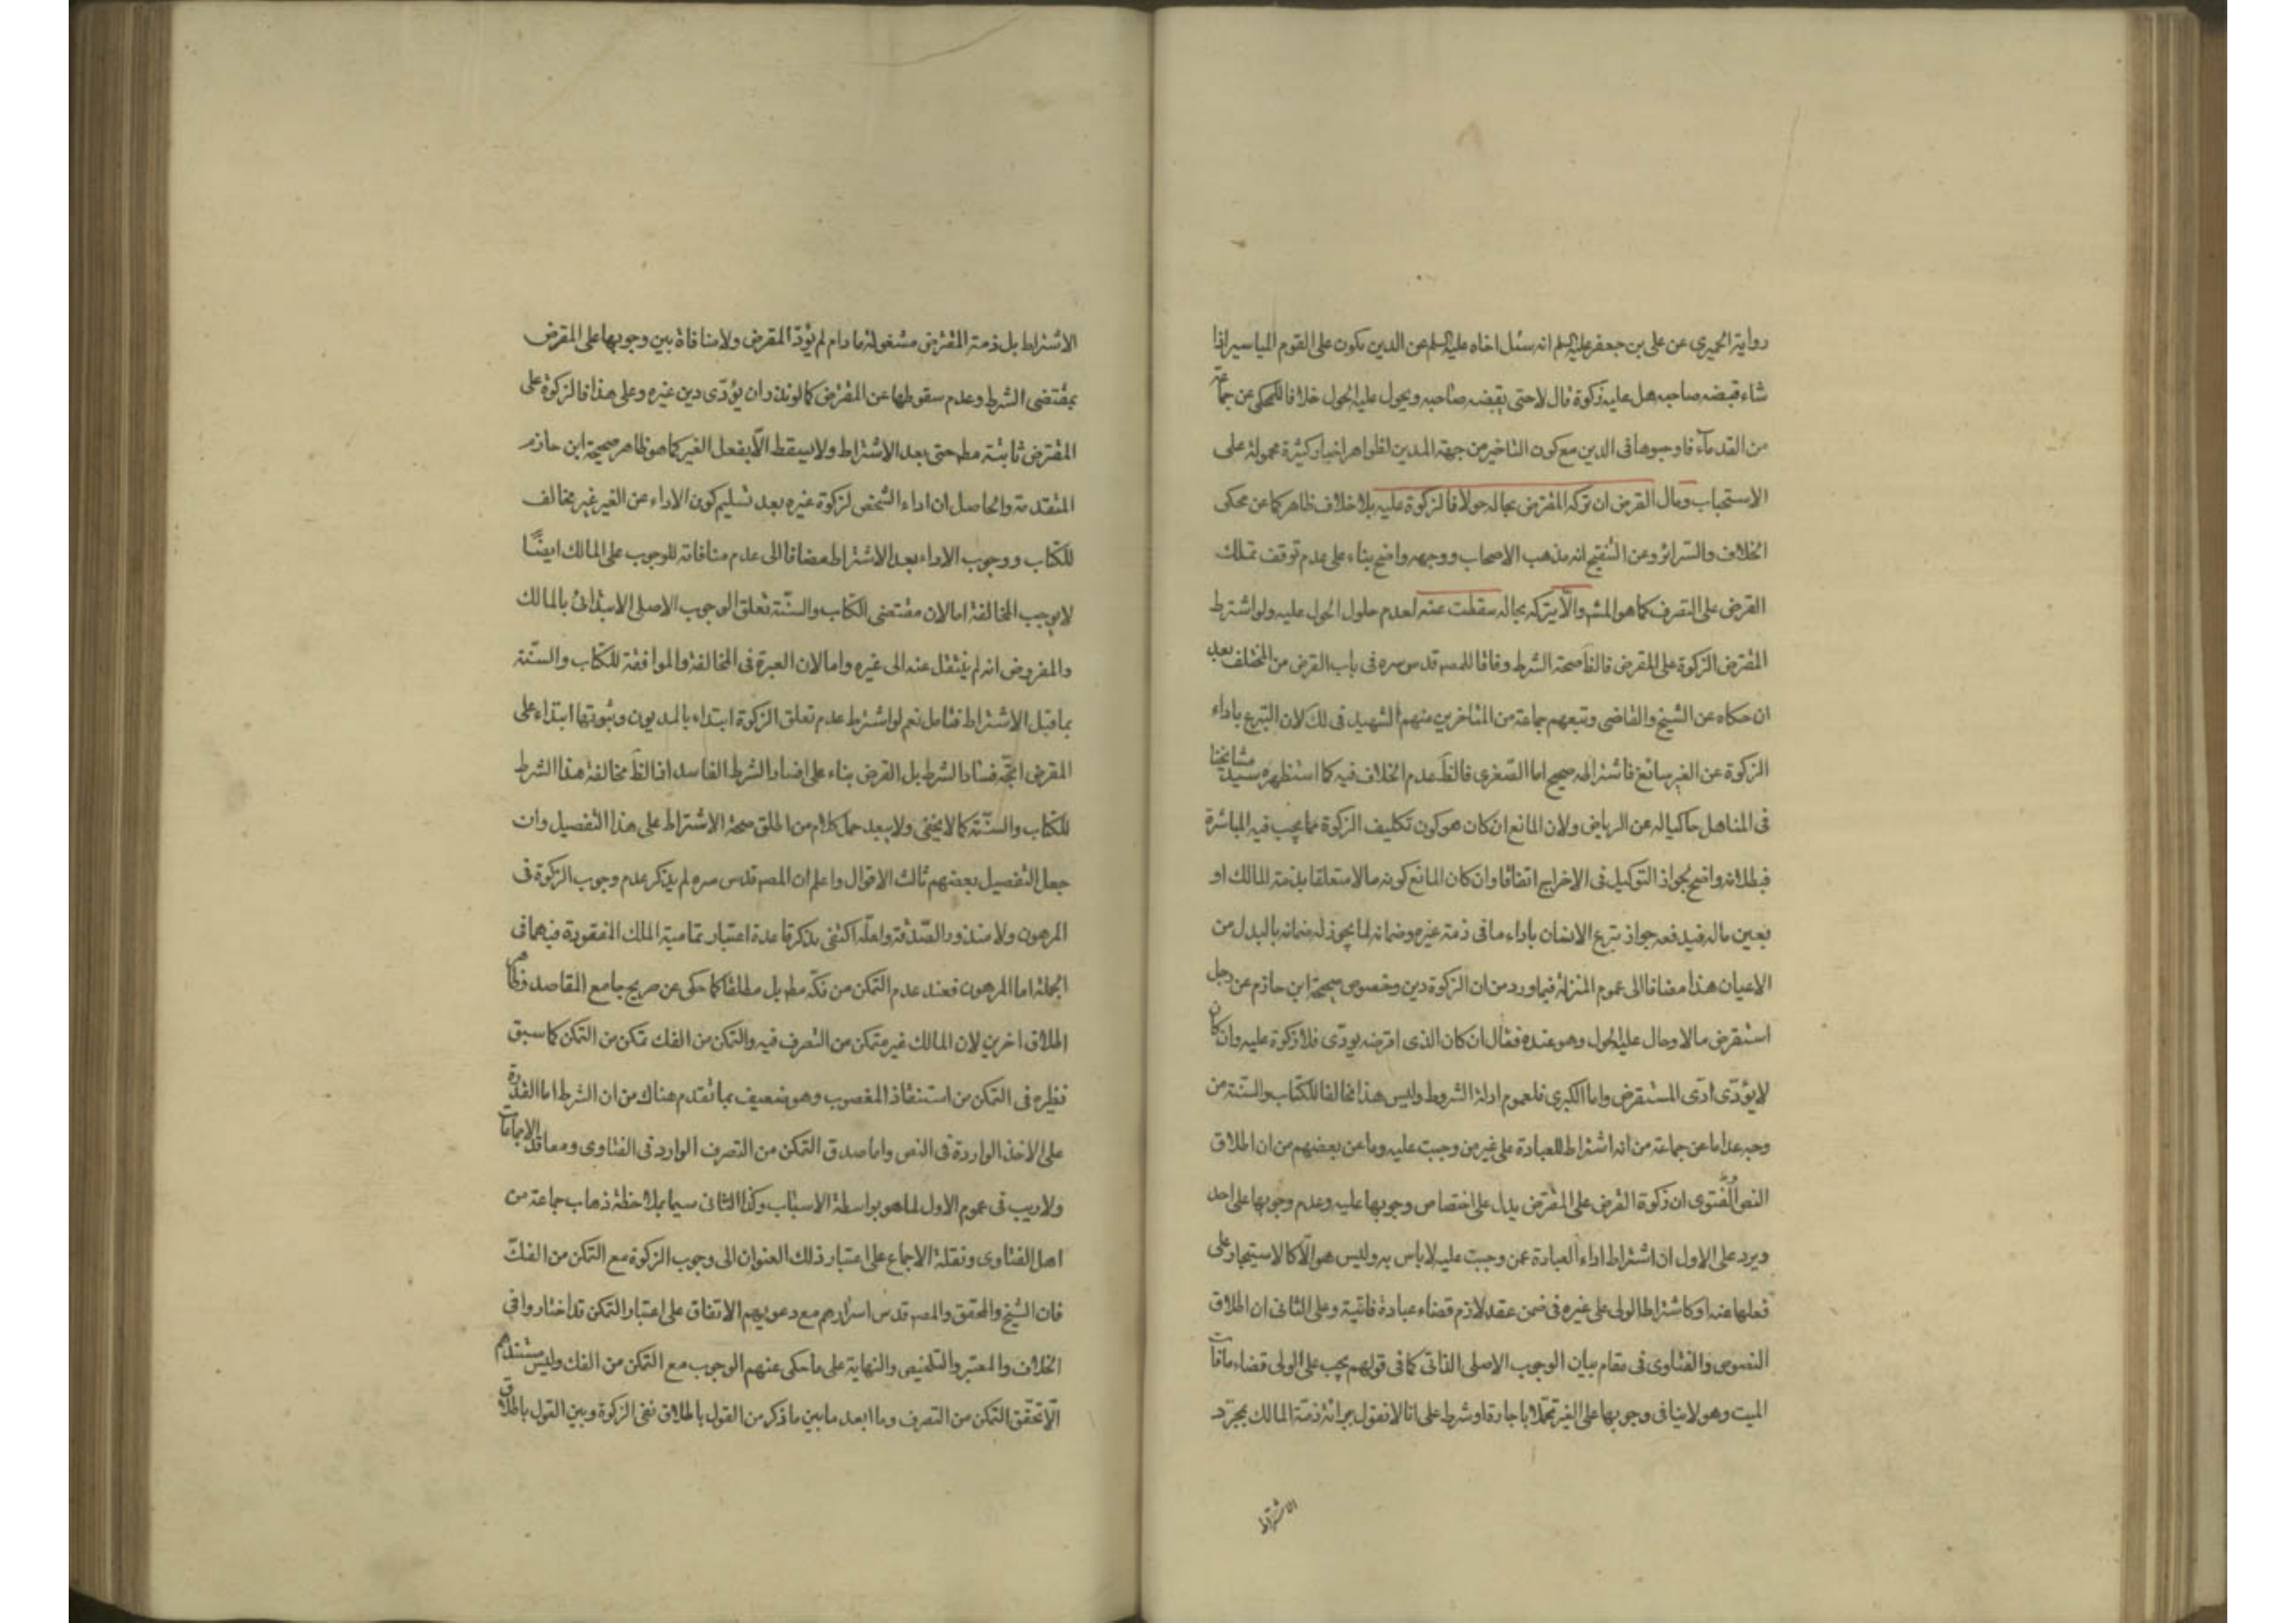 رواية الحميري عن علي بن جعفر عليه السلم انه سئل اخاه عليه السلم عن الدين يكون على القوم المياسير اذا
شاء قبضه صاحبه هل عليه زكوة قال لا حتى يقبضه صاحبه ويحول عليه الحول خلافا للمحكي عن جماعة
من القدماء فاوجبوها في الدين مع كون التاخير من جهة المدين لظواهر اخبار كثيرة محمولة على
الاستحباب ومال القرض ان تركه المقترض بحاله حولا فالزكوة عليه بلا خلاف ظاهر كما عن محكي
الخلاف والسرائر وعن التنقيح انه مذهب الاصحاب ووجهه واضح بناء على عدم توقف تملك
القرض على التصرف كما هو المشهور والا يتركه بحاله سقطت عنه لعدم حلول الحول عليه ولو اشترط
المقترض الزكوة على المقرض فالظ صحة الشرط وفاقا للمصـ قدس سره في باب القرض من المختلف بعد
ان حكاه عن الشيخ والقاضي وتبعهم جماعة من المتاخرين منهم الشهيد في لك لان التبرع باداء
الزكوة عن الغير سائغ فاشتراطه صحيح اما الصغرى فالظ عدم الخلاف فيه كما استظهره سيد مشايخنا
في المناهل حاكيا له عن الرياض ولان المانع ان كان هو كون تكليف الزكوة مما يجب فيه المباشرة
فبطلانه واضح لجواز التوكيل في الاخراج اتفاقا وان كان المانع كونه مالا متعلقا بذمة المالك او
بعين ماله فيدفعه جواز تبرع الانسان باداء ما في ذمة غيره وضمانه لما يجوز له ضمانه بالبدل من
الاعيان هذا مضافا الى عموم المنزلة فيما ورد من ان الزكوة دين وخصوص صحيحة ابن حازم عن رجل
استقرض مالا وحال عليه الحول وهو عنده فقال ان كان الذي اقرضه يودى فلا زكوة عليه وان كان
لا يؤدى ادى المستقرض واما الكبرى فلعموم ادلة الشروط وليس هذا مخالفا للكتاب والسنة من
وجه عدا ما عن جماعة من انه اشتراط للعبادة على غير من وجبت عليه وما عن بعضهم من ان اطلاق
النص والفتوى ان زكوة القرض على المقترض يدل على اختصاص وجوبها عليه وعدم وجوبها على احد
ويرد على الاول ان اشتراط اداء العبادة عمن وجبت عليه لا باس به وليس هو الا كالاستيجار على
فعلها عنه او كاشتراط الولي على غيره في ضمن عقد لازم قضاء عبادة فائتة وعلى الثاني ان اطلاق
النصوص والفتاوى في مقام بيان الوجوب الاصلي الذاتي كما في قولهم يجب على الولي قضاء ما فات
الميت وهو لا ينافي وجوبها على الغير تحملا باجارة او شرط على انا لا نقول ببرائة ذمة المالك بمجرد
الاشتراط
الاشتراط بل ذمة المقترض مشغولة ما دام لم يؤد المقرض ولا منافاة بين وجوبها على المقرض
بمقتضى الشرط وعدم سقوطها عن المقترض كما لو نذر ان يؤدى دين غيره وعلى هذا فالزكوة على
المقترض ثابتة مطـ حتى بعد الاشتراط ولا يسقط الا بفعل الغير كما هو ظاهر صحيحة ابن حازم
المتقدمة والحاصل ان اداء الشخص لزكوة غيره بعد تسليم كون الاداء عن الغير غير مخالف
للكتاب ووجوب الاداء بعد الاشتراط مضافا الى عدم منافاته للوجوب على المالك ايضا
لا يوجب المخالفة اما لان مقتضى الكتاب والسنة تعلق الوجوب الاصلي الابتدائي بالمالك
والمفروض انه لم ينتقل عنه الى غيره واما لان العبرة في المخالفة والموافقة للكتاب والسنة
بما قبل الاشتراط فتامل نعم لو اشترط عدم تعلق الزكوة ابتداء بالمديون وثبوتها ابتداء على
المقرض اتجه فساد الشرط بل القرض بناء على افساد الشرط الفاسد اذ الظ مخالفة هذا الشرط
للكتاب والسنة كما لا يخفى ولا يبعد حمل كلام من اطلق صحة الاشتراط على هذا التفصيل وان
جعل التفصيل بعضهم ثالث الاقوال واعلم ان المصـ قدس سره لم يذكر عدم وجوب الزكوة في
المرهون ولا منذور الصدقة ولعله اكتفى بذكر قاعدة اعتبار تمامية الملك المفقودة فيهما في
الجملة اما المرهون فعند عدم التمكن من فكه مطـ بل مطلقا كما حكى عن صريح جامع المقاصد وظاهر
اطلاق اخرين لان المالك غير متمكن من التصرف فيه والتمكن من الفك تمكن من التمكن كما سبق
نظيره في التمكن من استنقاذ المغصوب وهو ضعيف بما تقدم هناك من ان الشرط اما القدرة
على الاخذ الواردة في النص واما صدق التمكن من التصرف الوارد في الفتاوى ومعاقد الاجماعات
ولا ريب في عموم الاول لما هو بواسطة الاسباب وكذا الثاني سيما بملاحظة ذهاب جماعة من
اهل الفتاوى ونقلة الاجماع على اعتبار ذلك العنوان الى وجوب الزكوة مع التمكن من الفك
فان الشيخ والمحقق والمصـ قدس اسرارهم مع دعويهم الاتفاق على اعتبار التمكن قد اختاروا في
الخلاف والمعتبر والتلخيص والنهاية على ما حكى عنهم الوجوب مع التمكن من الفك وليس مستندهم
الا تحقق التمكن من التصرف وما ابعد ما بين ما ذكر من القول باطلاق نفى الزكوة وبين القول باطلاق